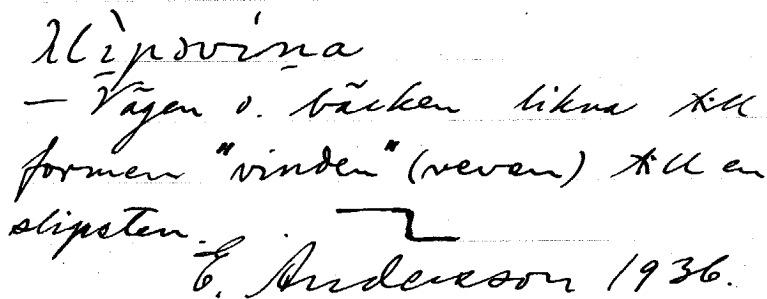 slìpsvína
— Vägen o. bäcken likna till
formen "vinden" (veven) till en
slipsten.
E. Andersson 1936.